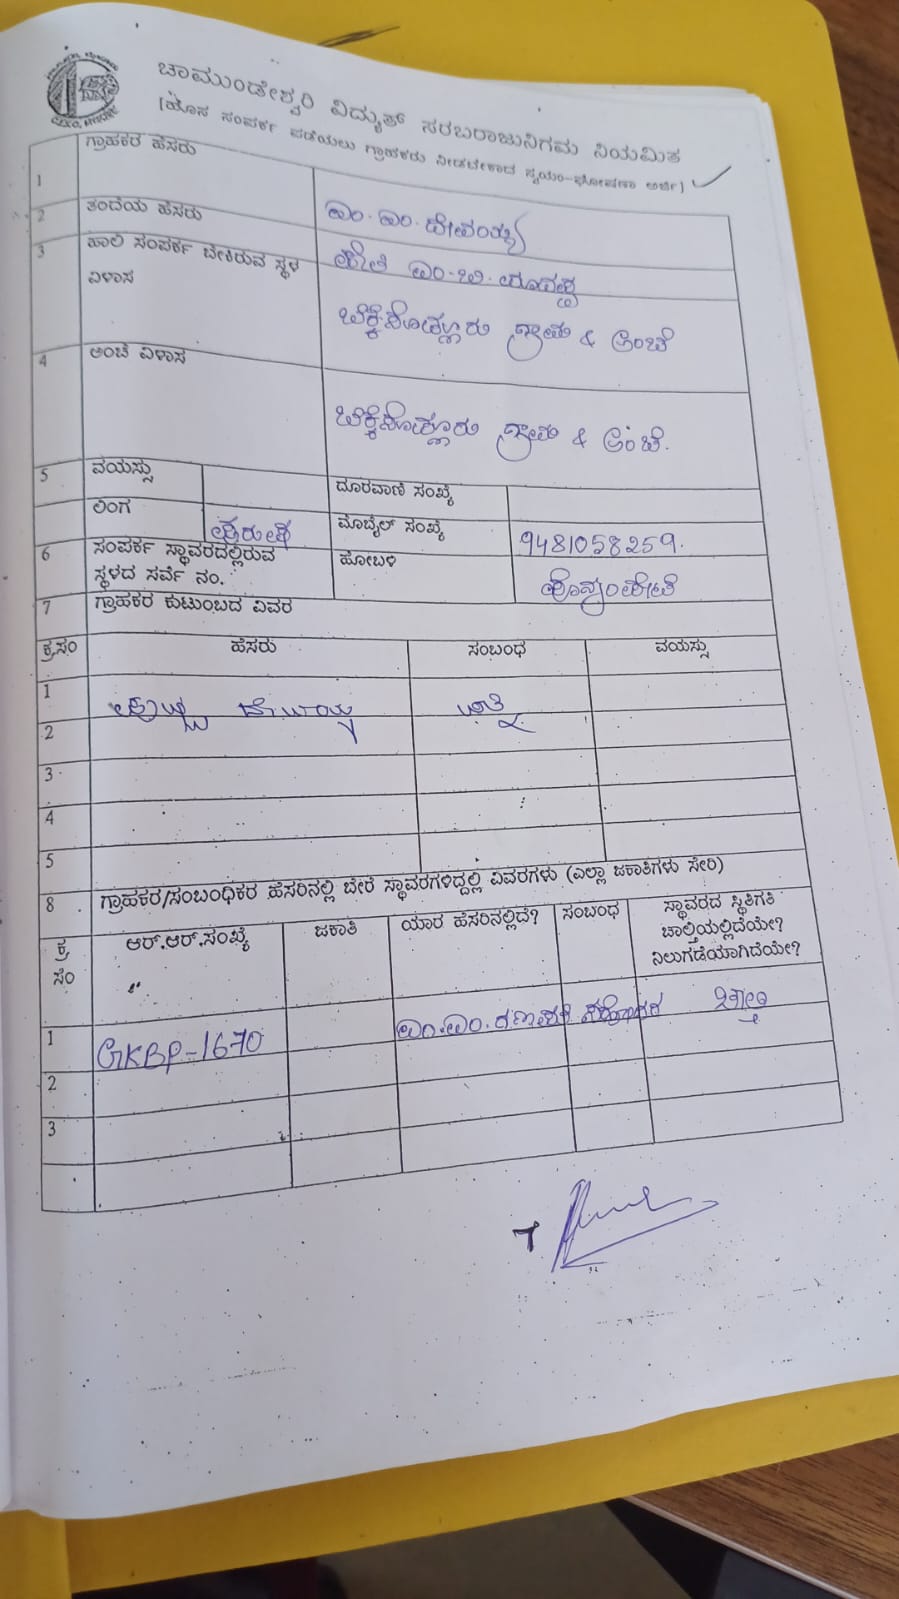 ಚಾಮುಂಡೇಶ್ವರಿ ವಿದ್ಯುತ್ ಸರಬರಾಜುನಿಗಮ ನಿಯಮಿತ
(ಹೊಸ ಸಂಪರ್ಕ ಪಡೆಯಲು ಗ್ರಾಹಕರು ನೀಡಬೇಕಾದ ಸ್ವಯಂ-ಘೋಷಣಾ ಅರ್ಜಿ)
1 ಗ್ರಾಹಕರ ಹೆಸರು ಎಂ.ಎಂ.
2 ತಂದೆಯ ಹೆಸರು ಎಂ.ಬಿ.
3 ಹಾಲಿ ಸಂಪರ್ಕ ಬೇಕಿರುವ ಸ್ಥಳ
ವಿಳಾಸ ಗ್ರಾಮ & ಅಂಚೆ
4 ಅಂಚೆ ವಿಳಾಸ
ಗ್ರಾಮ & ಅಂಚೆ.
5 ವಯಸ್ಸು ದೂರವಾಣಿ ಸಂಖ್ಯೆ
ಲಿಂಗ ಪುರುಷ ಮೊಬೈಲ್ ಸಂಖ್ಯೆ 9481058259.
6 ಸಂಪರ್ಕ ಸ್ಥಾವರದಲ್ಲಿರುವ
ಸ್ಥಳದ ಸರ್ವೆ ನಂ. ಹೋಬಳಿ ಪೊನ್ನಂಪೇಟೆ
7 ಗ್ರಾಹಕರ ಕುಟುಂಬದ ವಿವರ
ಕ್ರ.ಸಂ ಹೆಸರು ಸಂಬಂಧ ವಯಸ್ಸು
1 ಪತ್ನಿ
2
3
4
5
8 ಗ್ರಾಹಕರ/ಸಂಬಂಧಿಕರ ಹೆಸರಿನಲ್ಲಿ ಬೇರೆ ಸ್ಥಾವರಗಳಿದ್ದಲ್ಲಿ ವಿವರಗಳು (ಎಲ್ಲಾ ಜಕಾತಿಗಳು ಸೇರಿ)
ಕ್ರ.ಸಂ ಆರ್.ಆರ್.ಸಂಖ್ಯೆ ಜಕಾತಿ ಯಾರ ಹೆಸರಿನಲ್ಲಿದೆ? ಸಂಬಂಧ ಸ್ಥಾವರದ ಸ್ಥಿತಿಗತಿ
ಚಾಲ್ತಿಯಲ್ಲಿದೆಯೇ?
ನಿಲುಗಡೆಯಾಗಿದೆಯೇ?
1 GKBP-1670 ಎಂ.ಎಂ. ಗಣಪತಿ
2
3